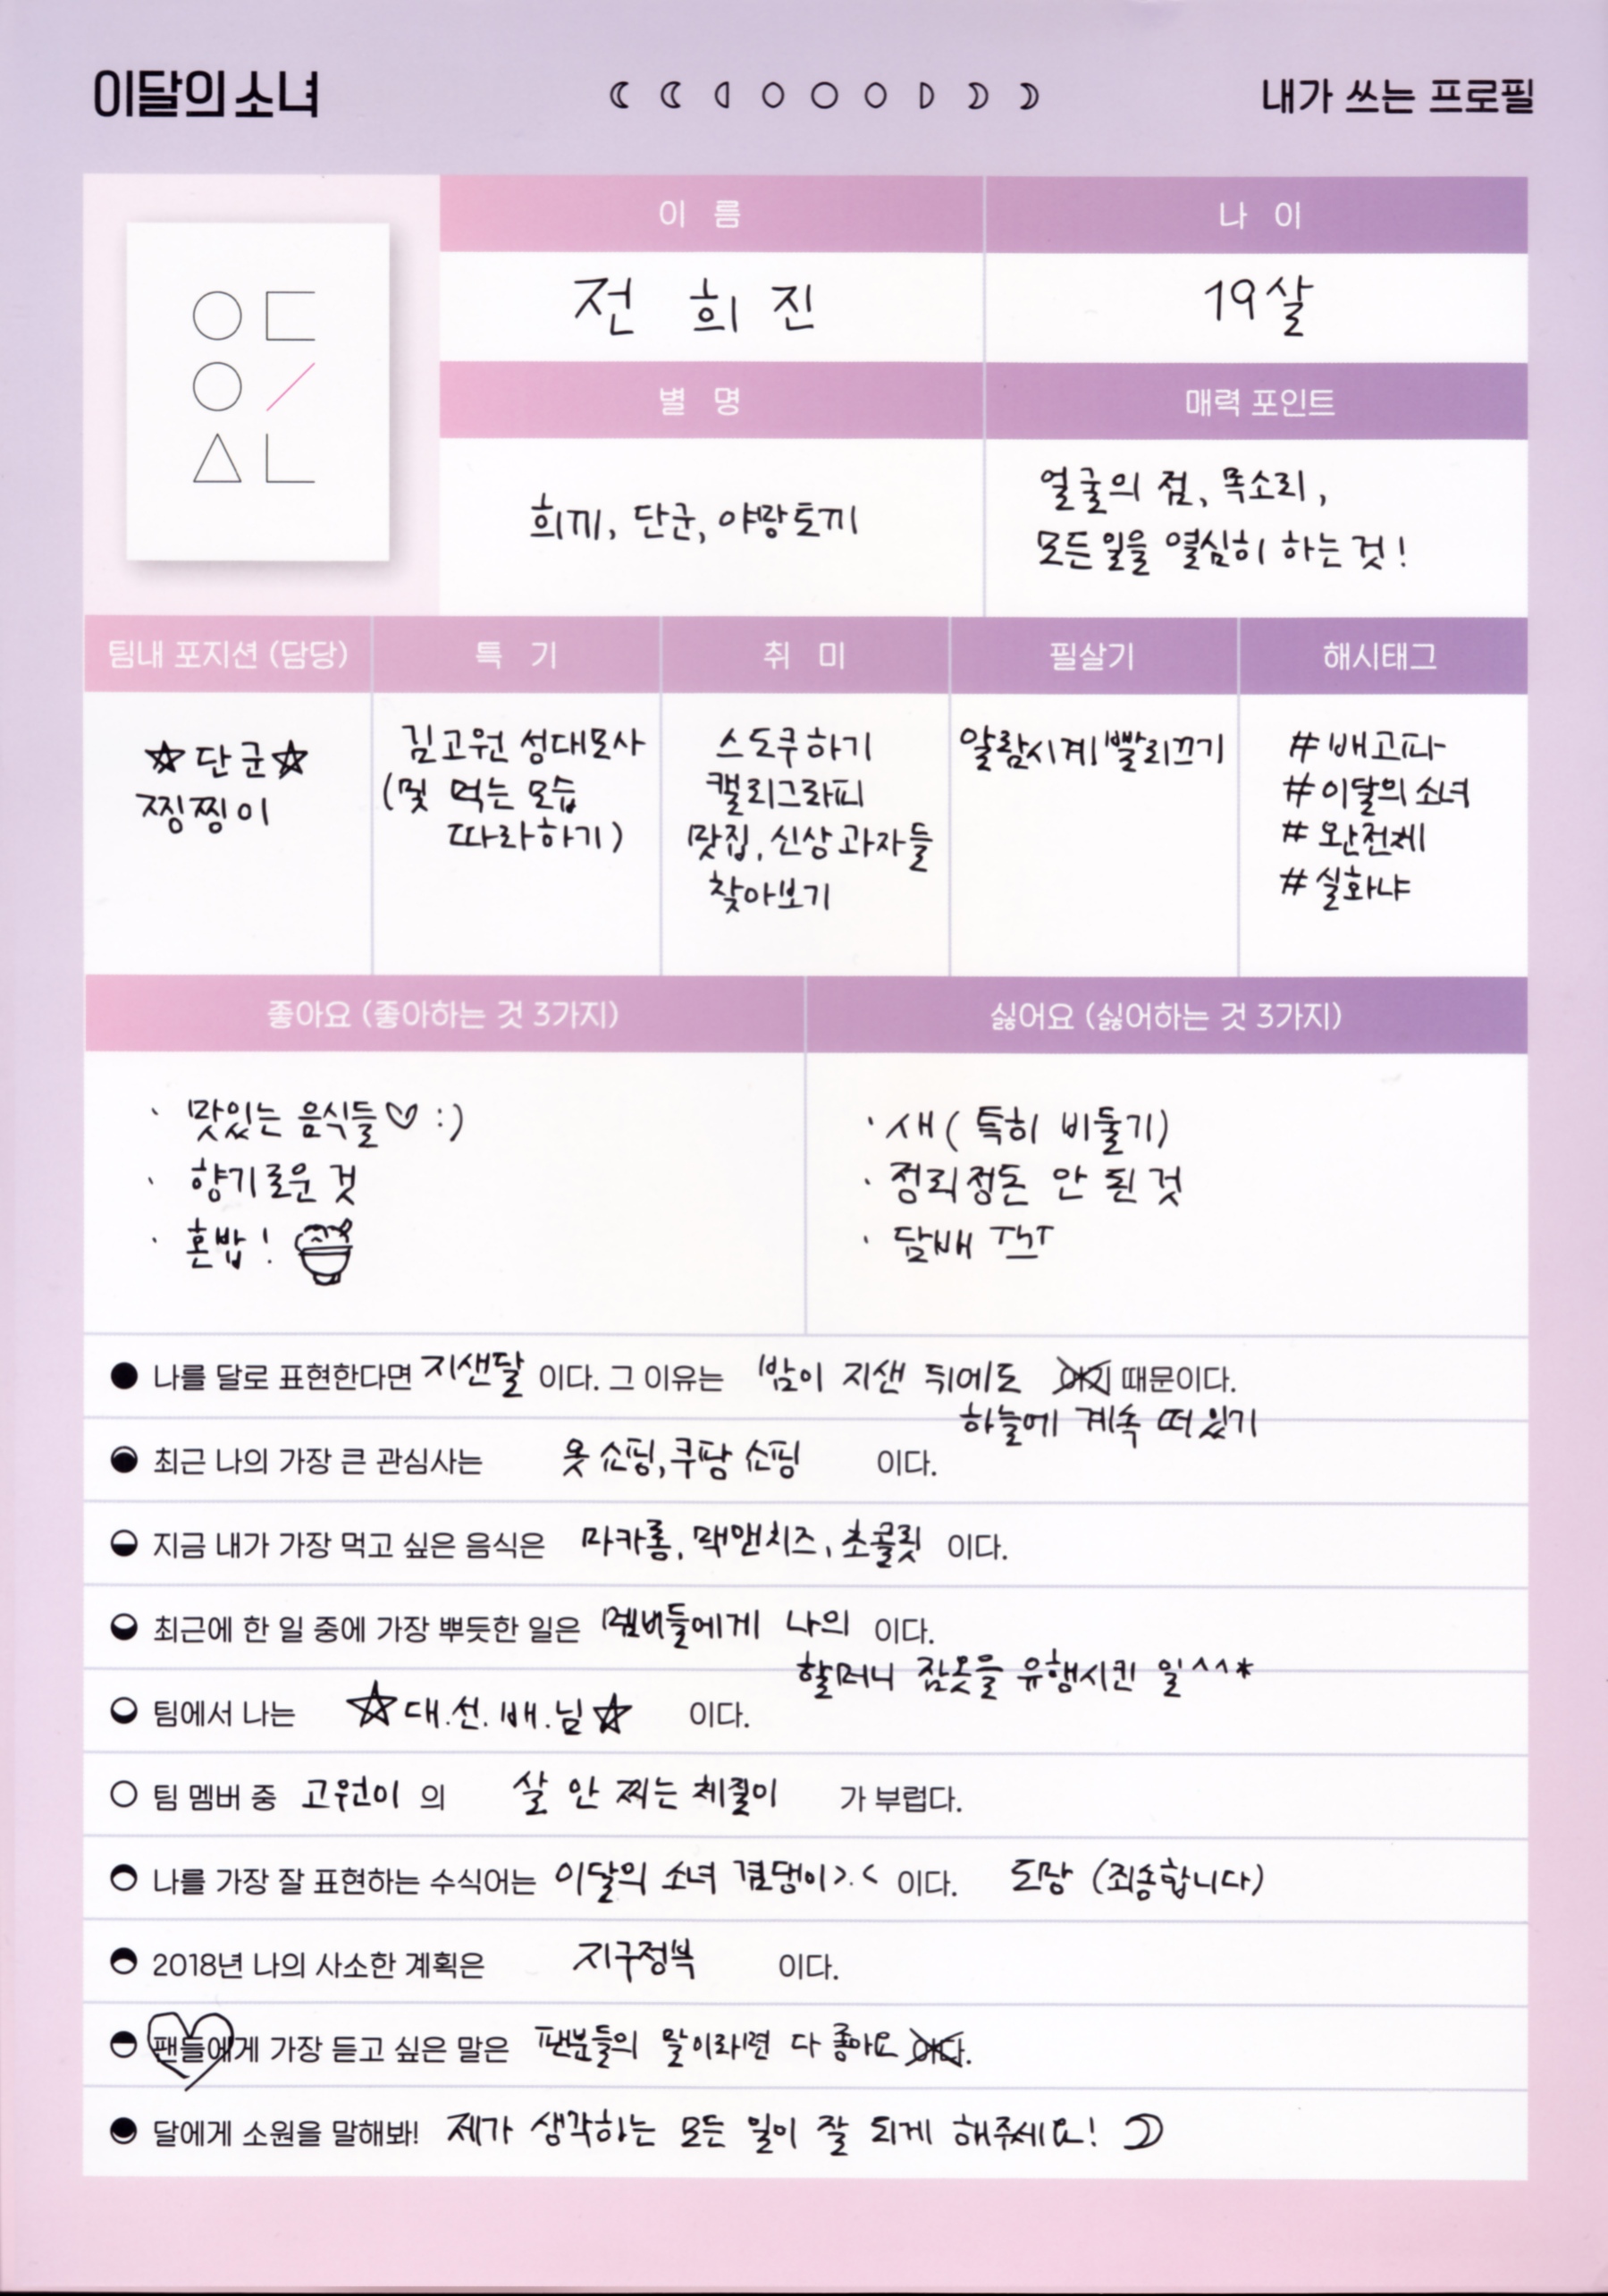 이달의 소녀
내가 쓰는 프로필
이 름
나 이
전 희 진
19살
별 명
매력 포인트
희끼, 단군, 야랑토끼
얼굴의 점, 목소리,
모든 일을 열심히 하는 것!
팀내 포지션 (담당)
특 기
취 미
필살기
해시태그
☆단군☆
찡찡이
김고원 성대모사
(뭣 먹는 모습
따라하기)
스도쿠하기
캘리그라피
맛집, 신상 과자들
찾아보기
알람시계 빨리끄기
#배고파
#이달의 소녀
#완전체
#실화냐
좋아요 (좋아하는 것 3가지)
싫어요 (싫어하는 것 3가지)
· 맛있는 음식들♡ :)
· 향기로운 것
· 혼밥!
· 새 (특히 비둘기)
· 정리정돈 안 된 것
· 담배 ㅜㅗㅜ
나를 달로 표현한다면 지샌달 이다. 그 이유는 밤이 지샌 뒤에도 때문이다.
하늘에 계속 떠 있기
최근 나의 가장 큰 관심사는 옷 쇼핑, 쿠팡 쇼핑 이다.
지금 내가 가장 먹고 싶은 음식은 마카롱, 맥앤치즈, 초콜릿 이다.
최근에 한 일 중에 가장 뿌듯한 일은 멤버들에게 나의 이다.
할머니 잠옷을 유행시킨 일^^*
팀에서 나는 ☆대.선.배.님☆ 이다.
팀 멤버 중 고원이 의 살 안 찌는 체질이 가 부럽다.
나를 가장 잘 표현하는 수식어는 이달의 소녀 겸댕이>.< 이다. 도망 (죄송합니다)
2018년 나의 사소한 계획은 지구정복 이다.
팬들에게 가장 듣고 싶은 말은 팬분들의 말이라면 다 좋아요 이다.
달에게 소원을 말해봐! 제가 생각하는 모든 일이 잘 되게 해주세요!